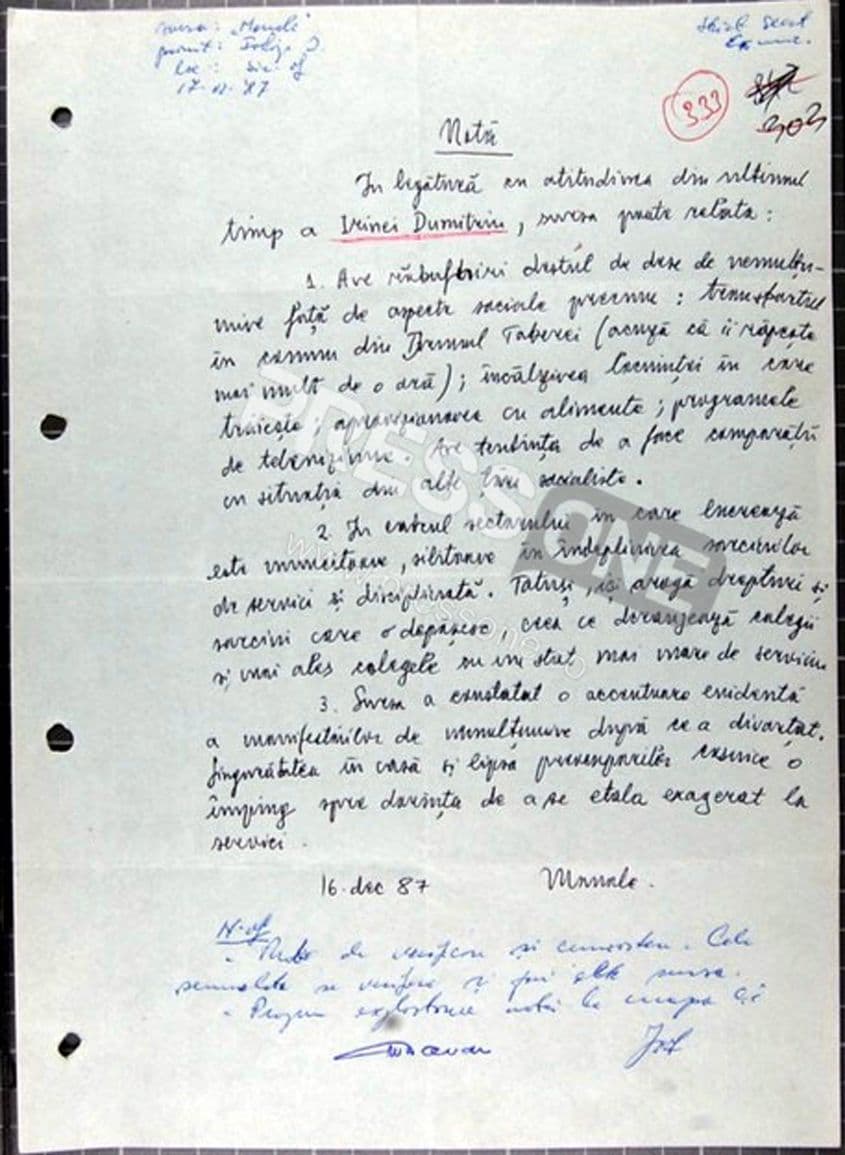 sursa: „Manole"
primit:
loc:
17.12.'87
Strict Secret
Ex. unic.
333
303
Notă
În legătură cu atitudinea din ultimul
timp a Irinei Dumitriu, sursa poate relata:
1. Are răbufniri destul de dese de nemulțu-
mire față de aspecte sociale precum: transportul
în comun din Drumul Taberei (acuză că îi răpește
mai mult de o oră); încălzirea locuinței în care
trăiește; aprovizionarea cu alimente; programele
de televiziune. Are tendința de a face comparații
cu situația din alte țări socialiste.
2. În cadrul sectorului în care lucrează
este muncitoare, silitoare în îndeplinirea sarcinilor
de servici și disciplinată. Totuși, își arogă drepturi și
sarcini care o depășesc, ceea ce deranjează colegii
și mai ales colegele cu un stat mai mare de serviciu
3. Sursa a constatat o accentuare evidentă
a manifestărilor de nemulțumire după ce a divorțat.
Singurătatea în casă și lipsa preocupărilor casnice o
împing spre dorința de a se etala exagerat la
servici.
16.dec 87 Manole.
N.of
de verificare și cunoaștere. Cele
semnalate se verifică și prin alte surse.
exploatarea notei la
PRESSONE
www.pressone.ro